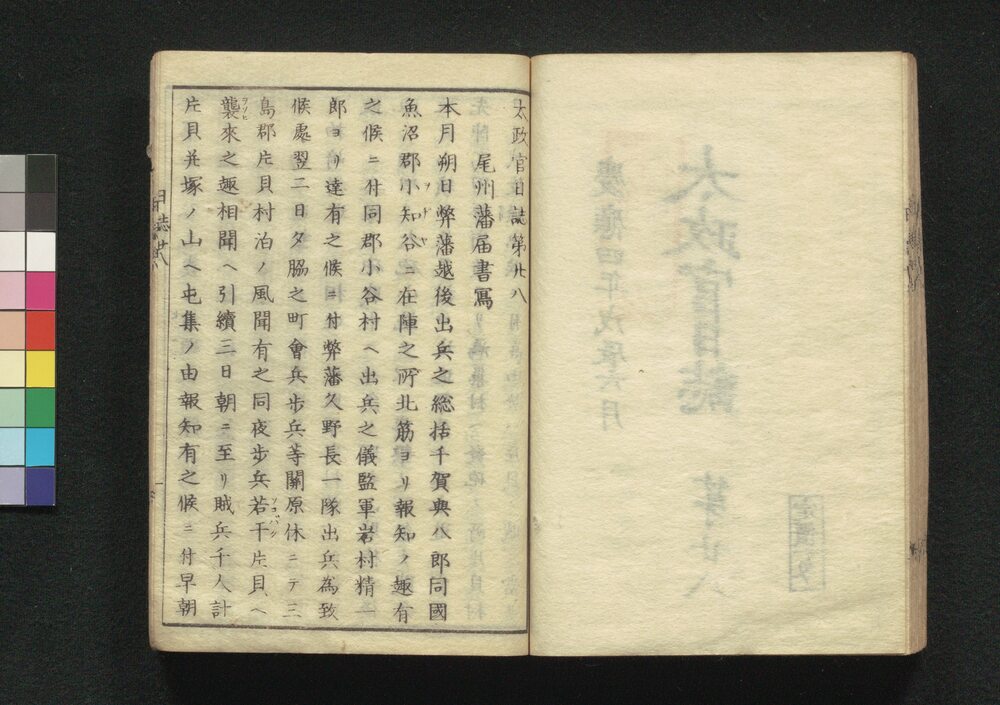 太政官日誌第廿八
尾州藩届書寫
本月朔日弊藩越後出兵之総括千賀與八郎同國
魚沼郡小知谷ニ在陣之所北筋ヨリ報知ノ趣有
之候ニ付同郡小谷村ヘ出兵之儀監軍岩村精一
郎ヨリ達有之候ニ付弊藩久野長一隊出兵為致
候處翌二日夕脇之町會兵歩兵等關原休ニテ三
島郡片貝村泊ノ風聞有之同夜歩兵若干片貝ヘ
襲來之趣相聞ヘ引續三日朝ニ至リ賊兵千人計
片貝并塚ノ山ヘ屯集ノ由報知有之候ニ付早朝
日誌廿八
太政官日誌 第廿八
慶應四年戊辰六月